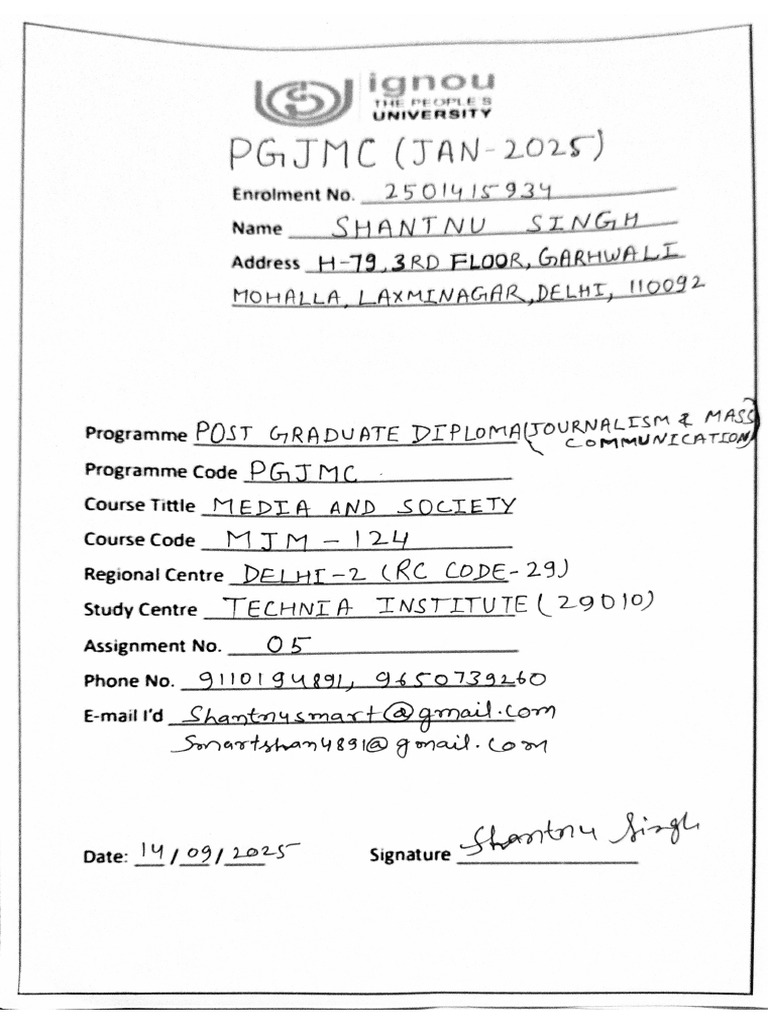 ignou
THE PEOPLE'S
UNIVERSITY
PGJMC (JAN-2025)
Enrolment No. 2501415934
Name SHANTNU SINGH
Address H-79, 3RD FLOOR, GARHWALI
MOHALLA, LAXMINAGAR, DELHI, 110092
Programme POST GRADUATE DIPLOMA (JOURNALISM & MASS
COMMUNICATION)
Programme Code PGJMC
Course Tittle MEDIA AND SOCIETY
Course Code MJM - 124
Regional Centre DELHI-2 (RC CODE-29)
Study Centre TECHNIA INSTITUTE (29010)
Assignment No. 05
Phone No. 9110194891, 9650739260
E-mail I'd Shantnusmart@gmail.com
Smartshan4891@gmail.com
Date: 14/09/2025 Signature Shantnu Singh